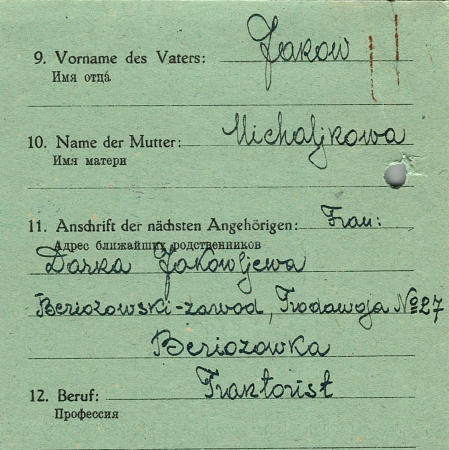 9. Vorname des Vaters: Jakow
Имя отца
10. Name der Mutter: Michaljkowa
Имя матери
11. Anschrift der nächsten Angehörigen: Frau:
Адрес ближайших родственников
Darka Jakowljewa
Beriozowski-zawod, № 27
Beriozowka
12. Beruf: Traktorist
Профессия